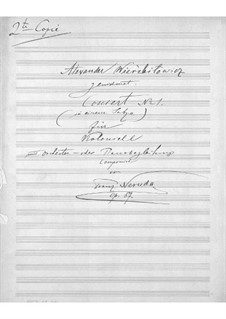 2te Copie
Alexander Wierzbilowicz
gewidmet.
Concert No. 1.
(in einem Satze)
für
Violoncell
Orchester- oder Pianobegleitung
componirt
von
Franz Neruda
Op. 57.